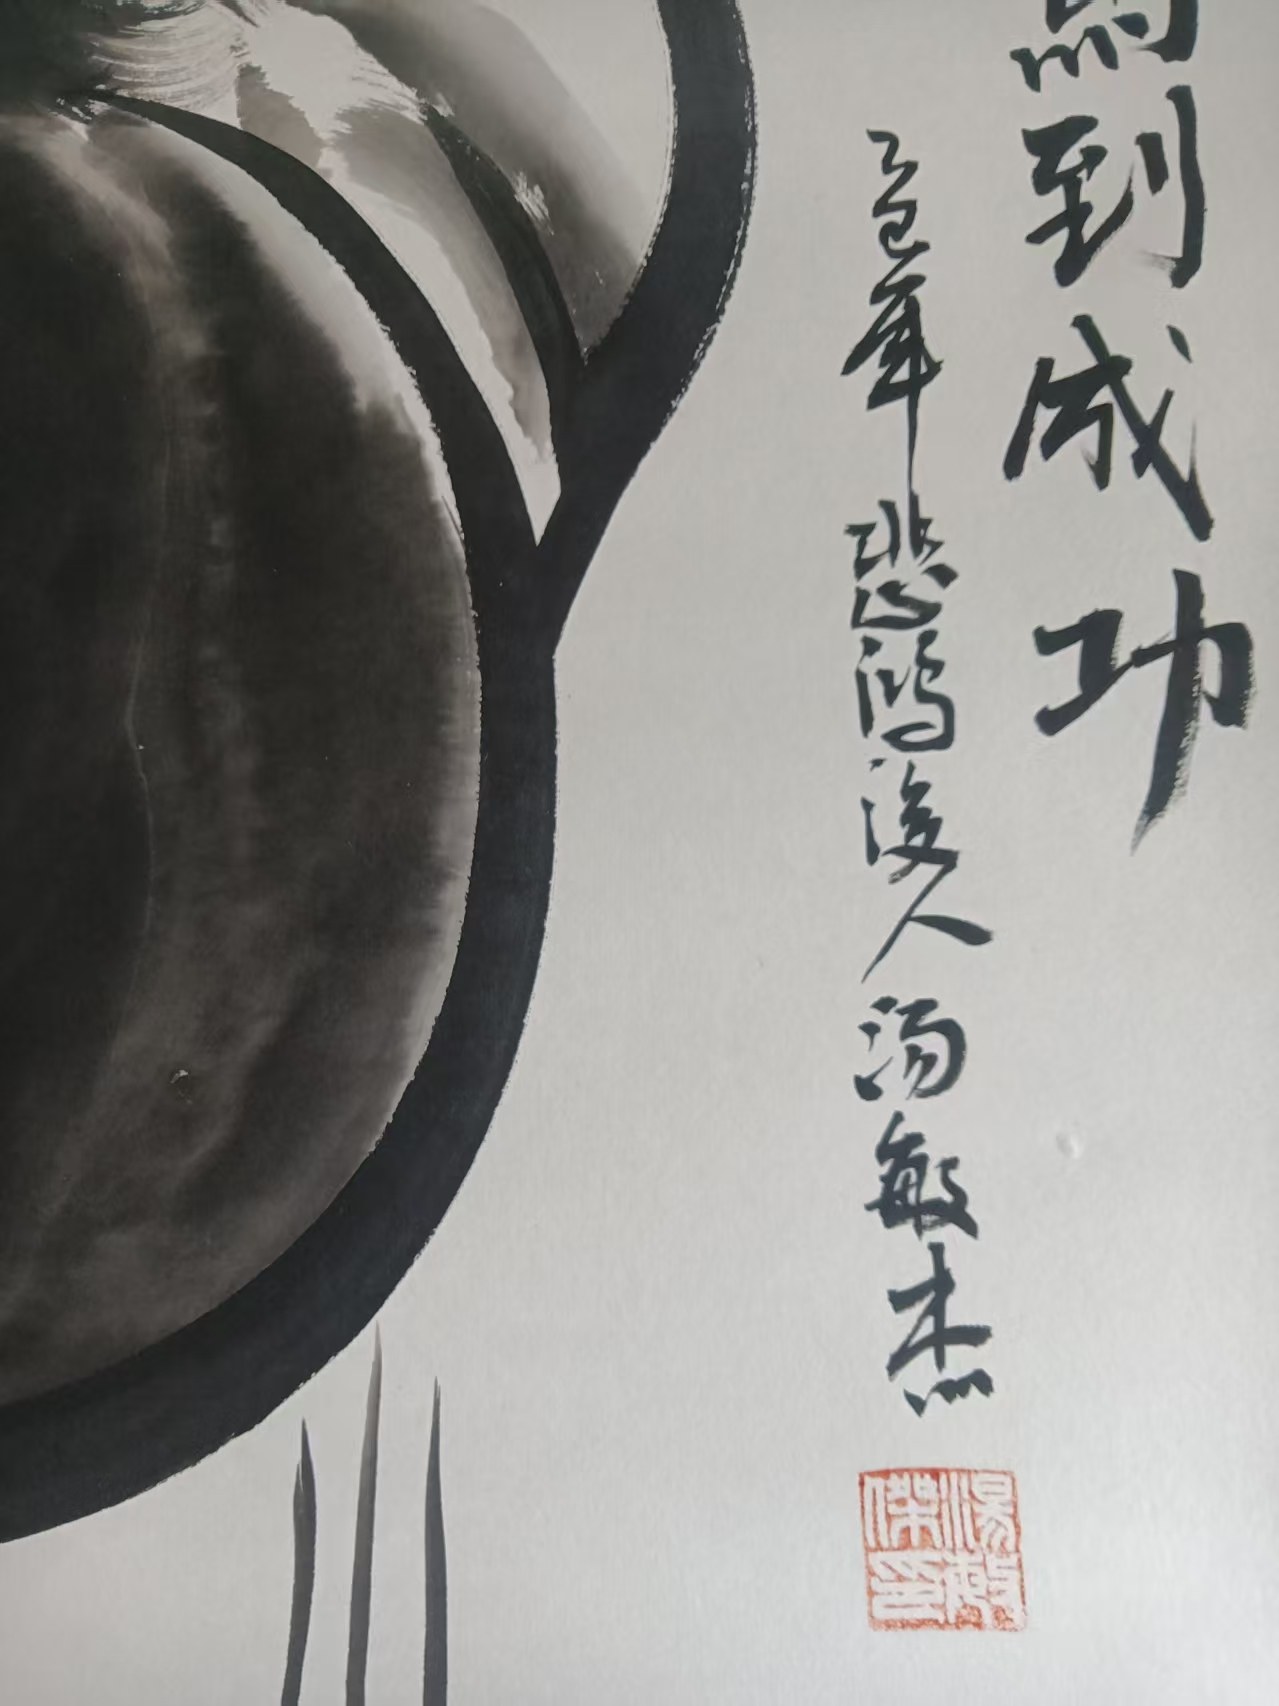 馬到成功
乙巳年悲鴻後人汤敏杰
湯敏傑印